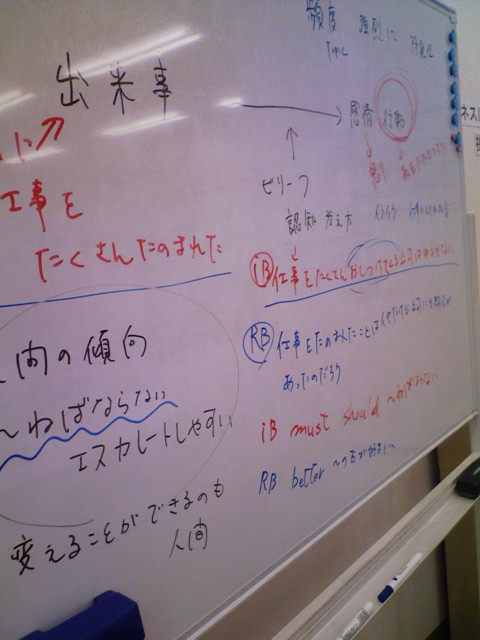 頻度 強烈に
出来事
感情 行動
怒り
ビリーフ
認知 考え方
イライラ
仕事を
たくさんたのまれた
iB 仕事をたくさんおしつけてくる上司はゆるせない
RB 仕事をたのまれたことは
あったのだろう
間の傾向
〜ねばならない
エスカレートしやすい
iB must should 〜ねばならない
RB better 〜の方が好ましい
変えることができるのも
人間
ネス